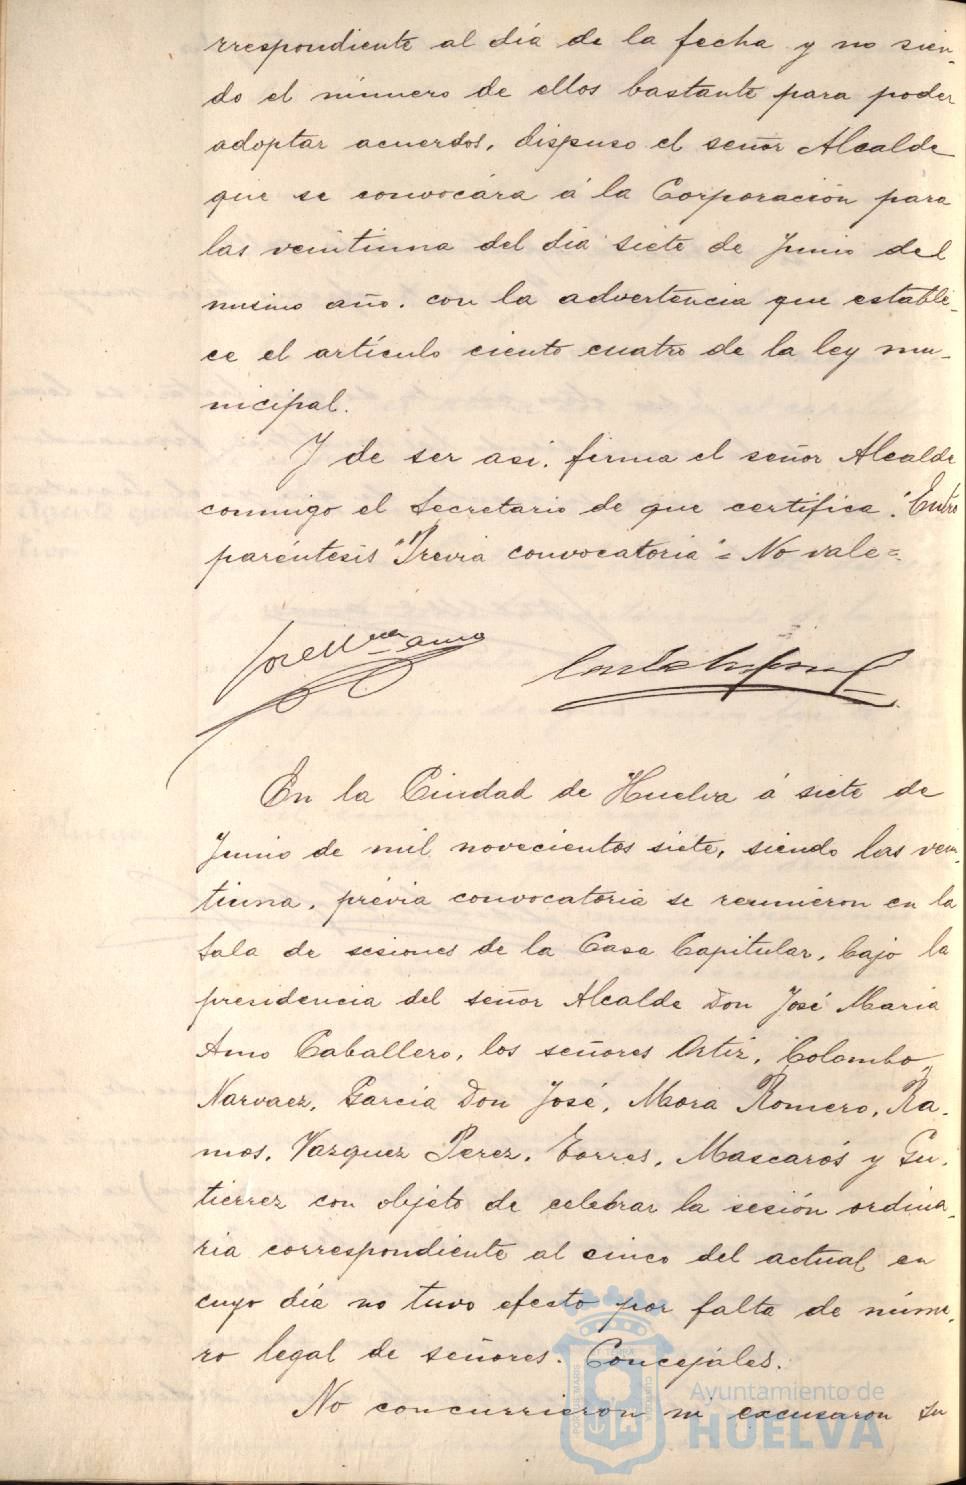 rrespondiente al día de la fecha y no sien-
do el número de ellos bastante para poder
adoptar acuerdos, dispuso el señor Alcalde
que se convocára á la Corporación para
las veintiuna del dia siete de Junio del
mismo año. con la advertencia que estable-
ce el artículo ciento cuatro de la ley mu-
nicipal.
Y de ser asi. firma el señor Alcalde
conmigo el Secretario de que certifica. "Entre
paréntesis "Previa convocatoria" = No vale =
José Mª Amo
En la Ciudad de Huelva á siete de
Junio de mil novecientos siete, siendo las vein-
tiuna, prévia convocatoria se reunieron en la
Sala de sesiones de la Casa Capitular, bajo la
presidencia del señor Alcalde Don José Maria
Amo Caballero, los señores Ortiz, Colombo,
Narvaez, Garcia Don José, Mora Romero, Ra-
mos, Vazquez Perez, Torres, Mascarós y Gu-
tierrez con objeto de celebrar la sesión ordina-
ria correspondiente al cinco del actual en
cuyo día no tuvo efecto por falta de núme-
ro legal de señores. Concejales.
No concurrieron ni excusaron su
Ayuntamiento de
HUELVA